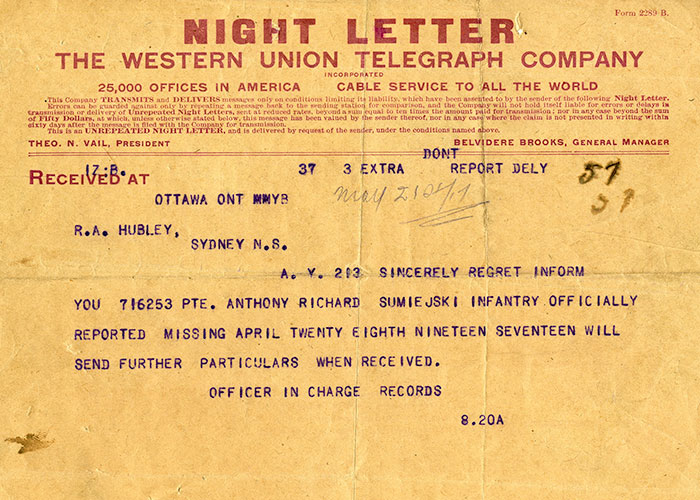 Form 2289 B.
NIGHT LETTER
THE WESTERN UNION TELEGRAPH COMPANY
INCORPORATED
25,000 OFFICES IN AMERICA CABLE SERVICE TO ALL THE WORLD
This Company TRANSMITS and DELIVERS messages only on conditions limiting its liability, which have been assented to by the sender of the following Night Letter.
Errors can be guarded against only by repeating a message back to the sending station for comparison, and the Company will not hold itself liable for errors or delays in
transmission or delivery of Unrepeated Night Letters, sent at reduced rates, beyond a sum equal to ten times the amount paid for transmission; nor in any case beyond the sum
of Fifty Dollars, at which, unless otherwise stated below, this message has been valued by the sender thereof, nor in any case where the claim is not presented in writing within
sixty days after the message is filed with the Company for transmission.
This is an UNREPEATED NIGHT LETTER, and is delivered by request of the sender, under the conditions named above.
THEO. N. VAIL, PRESIDENT BELVIDERE BROOKS, GENERAL MANAGER
DONT
17:B. 37 3 EXTRA REPORT DELY 57
RECEIVED AT
57
OTTAWA ONT MMYB
R.A. HUBLEY,
SYDNEY N.S.
A. Y. 213 SINCERELY REGRET INFORM
YOU 716253 PTE. ANTHONY RICHARD SUMIEJSKI INFANTRY OFFICIALLY
REPORTED MISSING APRIL TWENTY EIGHTH NINETEEN SEVENTEEN WILL
SEND FURTHER PARTICULARS WHEN RECEIVED.
OFFICER IN CHARGE RECORDS
8.20A